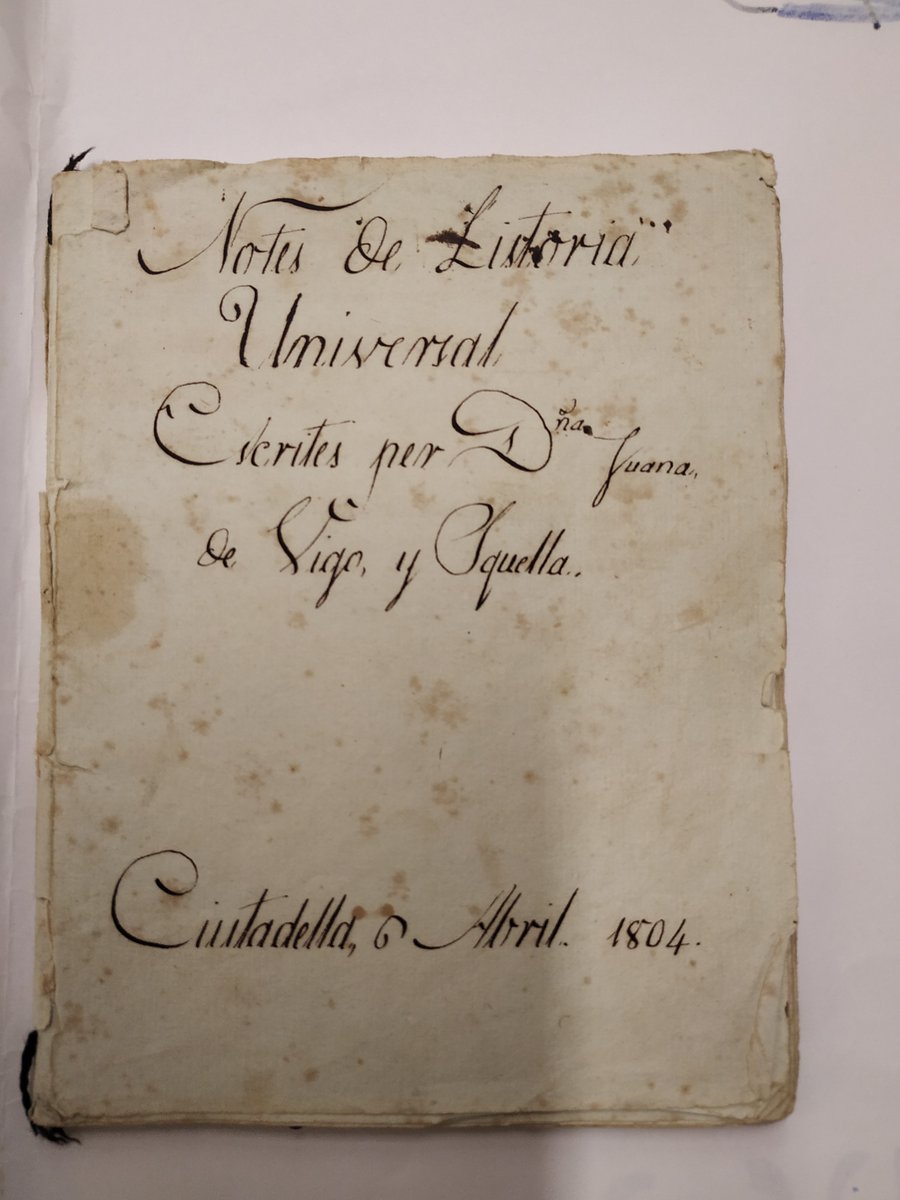 Notes de Listoria
Universal
Escrites per Dña Juana
de Vigo, y Squella.
Ciutadella, 6 Abril. 1804.